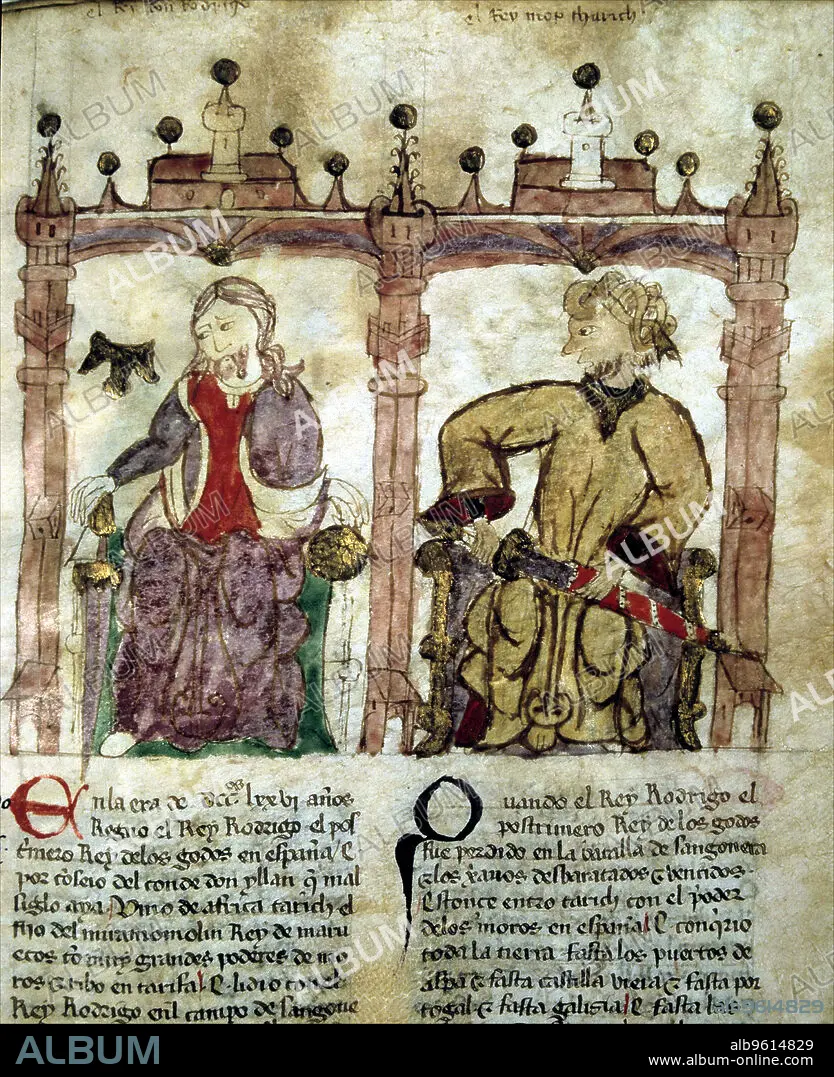 el Rey don Rodrigo
el Rey mop tharich
En la era de DCCos lxxvi años
Regno el Rey Rodrigo el pos
t'mero Rey de los godos en españa / E
por cōseio del conde don yllan q̄ mal
siglo aya / Vino de africa tarich el
fijo del miramomolin Rey de maru
ecos cō muy grandes poderes de mo
ros & ribo en tarifa / E lidio con el
Rey Rodrigo en'l campo de sangone
Quando el Rey Rodrigo el
postrimero Rey de los godos
fue perdido en la batalla de sangonera
& los xanos desbaratados & vencidos.
Estonce entro tarich con el poder
de los moros en españa / E conq'rio
toda la tierra fasta los puertos de
aspa & fasta castilla vieia & fasta por
togal & fasta galisia / E fasta las
ALBUM
alb9614829
www.album-online.com